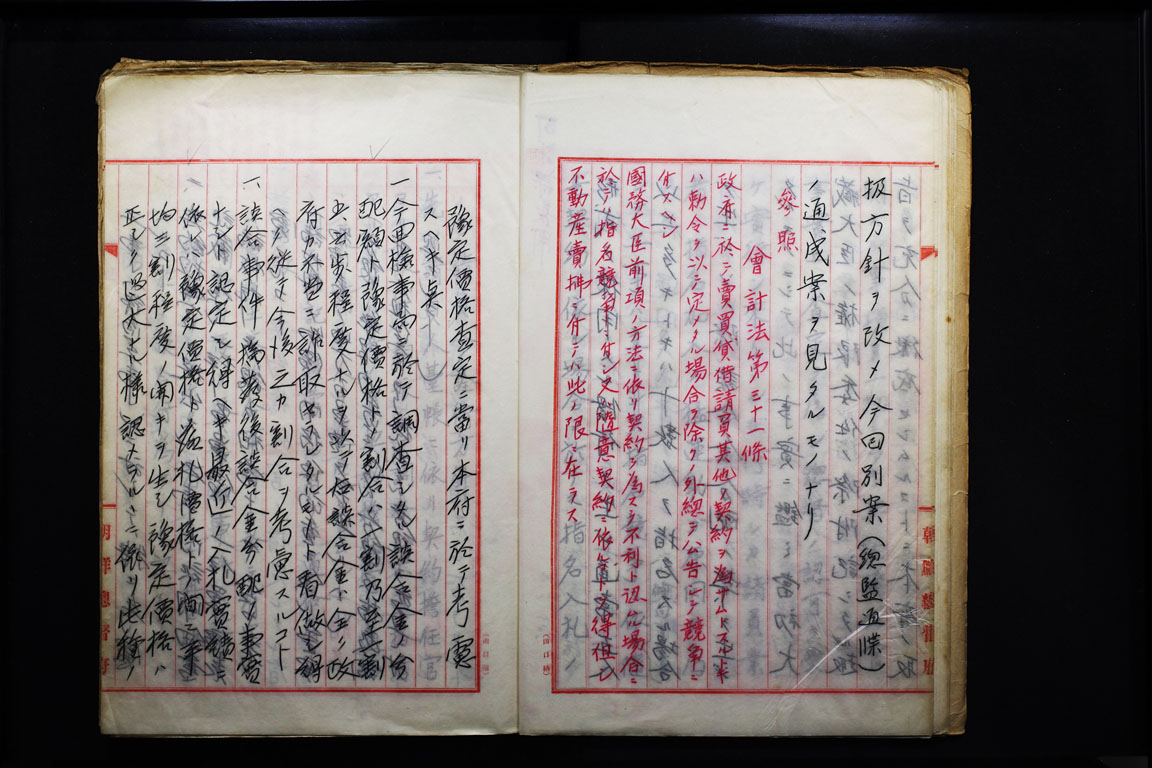 扱方針ヲ改メ今回別案(總監通牒)
ノ通成案ヲ見タルモノナリ
參照
會計法第三十一條
政府ニ於テ賣買貸借請負其他ノ契約ヲ為サムトスルトキ
ハ勅令ヲ以テ定メタル場合ヲ除クノ外總テ公告シテ競争ニ
付スヘシ
國務大臣前項ノ方法ニ依リ契約ヲ為スヲ不利ト認ムル場合ニ
於テハ指名競争ニ付シ又ハ隨意契約ニ依ルコトヲ得但シ
不動産賣拂ニ付テハ此ノ限ニ在ラス
朝鮮總督府
豫定價格査定ニ當リ本府ニ於テ考慮
スヘキ点
一今回檢事局ニ於テ調査シタル談合金ノ分
配額ト豫定價格トノ割合ハ 割乃至二割
五分 程度ナルヲ以テ右談合金ハ全ク政
府カ不當ニ詐取セラレタルモノト看做シ得
ヘク從テ今後之カ割合ヲ考慮スルコト
八談合事件摘發後談合金分配ノ事實
ナシト認定シ得ヘキ最近ノ入札實績ニ
依レハ豫定價格ト落札價格トノ間ニ平
均三割程度ノ開キヲ生シ豫定價格ハ
正シク過大ナル様認メラルルニ依リ此際
朝鮮總督府